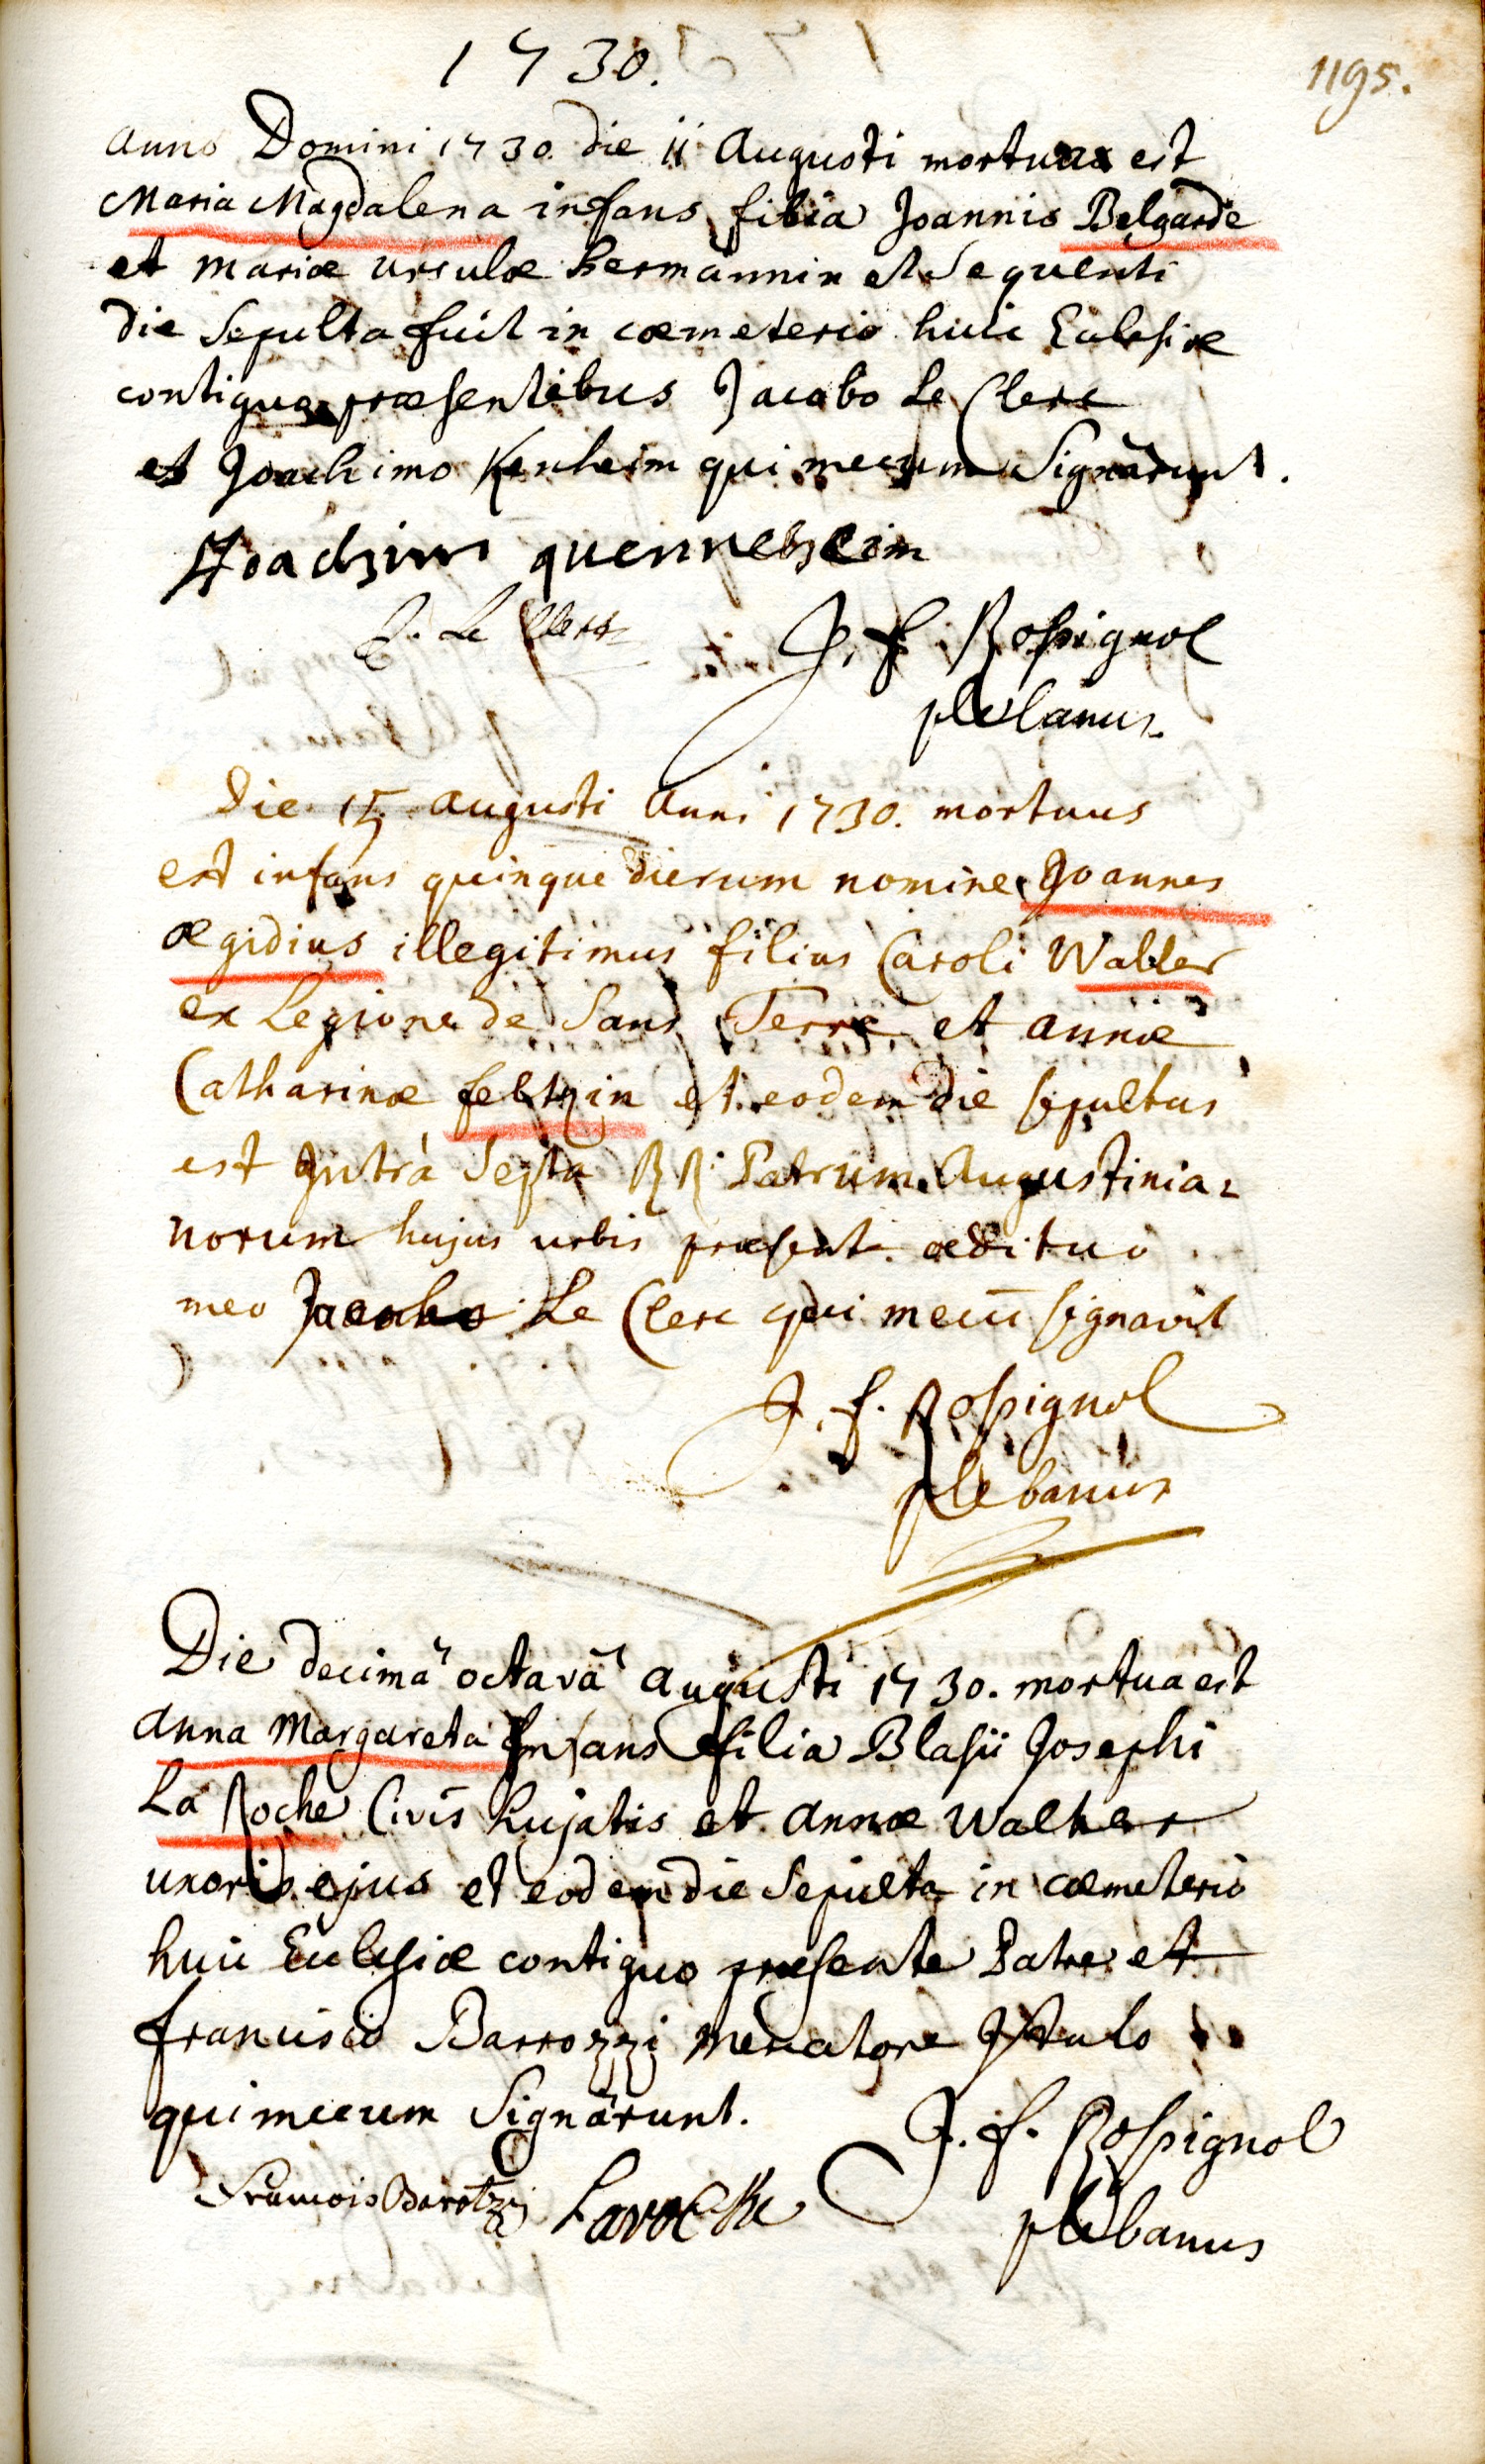 1730.
1195.
Anno Domini 1730. die ii Augusti mortua est
Maria Magdalena infans filia Joannis Belgarde
et mariæ ursulæ hermannin et Sequenti
die Sepulta fuit in cœmeterio huic Ecclesiæ
contiguo præsentibus Jacobo Le Clerc
et Joachimo Kenheim qui mecum Signârunt.
Joachim quenneheim
J. Le Clerc
J. f. Rossignol
plebanus.
Die 15 augusti anni 1730. mortuus
est infans quinque dierum nomine Joannes
ægidius illegitimus filius Caroli Walter
ex Legione de Sans Terre et annæ
Catharinæ feltzin et eodem die sepultus
est Intrà Septa RR. Patrum Augustinia=
norum hujus urbis præsente ædituo
meo Jacobo Le Clerc qui mecū signavit
J. f. Rossignol
plebanus
Die decimâ octavâ augusti 1730. mortua est
anna Margareta Infans filia Blasii Josephi
La Roche Civis hujatis et annæ Walter
uxoris ejus et eodem die Sepulta in cœmeterio
huic Ecclesiæ contiguo præsente Patre et
francisco Barrozzi Mercatore Italo
qui mecum Signârunt.
J. f. Rossignol
plebanus
François Barotzi Laroche